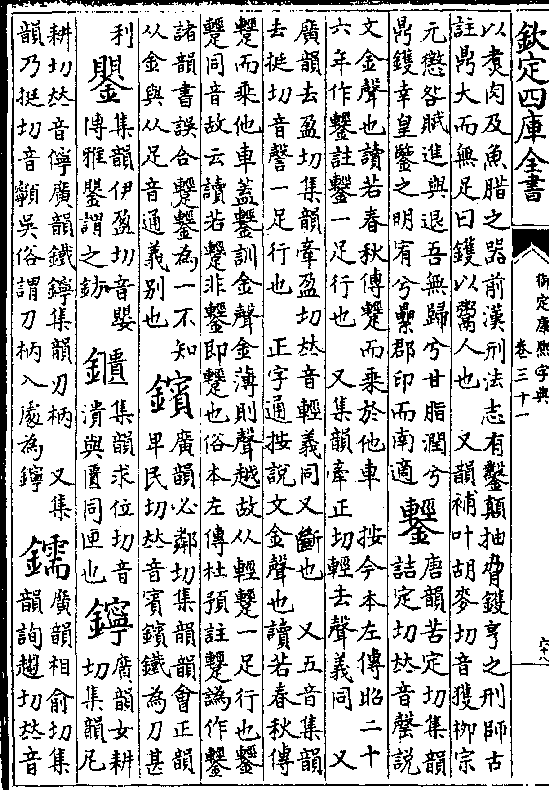 欽定四庫全書
御定康熙字典
卷三十一
六十八
以煑肉及魚腊之器前漢刑法志有鑿顛抽脅鑊亨之刑師古
註鼎大而無足曰鑊以鬻人也 又韻補叶胡麥切音獲柳宗
元懲咎賦進與退吾無歸兮甘脂潤兮
鼎鑊幸皇鑒之明宥兮纍郡印而南適
鑋
唐韻苦定切集韻
詰定切𠀤音罄說
文金聲也讀若春秋傳䠳而乘於他車 按今本左傳昭二十
六年作鑋註鑋一足行也 又集韻牽正切輕去聲義同 又
廣韻去盈切集韻牽盈切𠀤音輕義同又斷也 又五音集韻
去挺切音謦一足行也 正字通按說文金聲也讀若春秋傳
䠳而乘他車蓋鑋訓金聲金薄則聲越故从輕䠳一足行也鑋
䠳同音故云讀若䠳非鑋即䠳也俗本左傳杜預註䠳譌作鑋
諸韻書誤合䠳鑋為一不知
从金與从足音通義别也
鑌
廣韻必鄰切集韻韻會正韻
卑民切𠀤音賓鑌鐵為刀甚
利
鑍
集韻伊盈切音嬰
博雅鑍謂之鈁
鑎
集韻求位切音
潰與匱同匣也
鑏
廣韻女耕
切集韻尼
耕切𠀤音儜廣韻鐵鑏集韻刀柄 又集
韻乃挺切音吳俗謂刀柄入處為鑏
鑐
廣韻相俞切集
韻詢趨切𠀤音